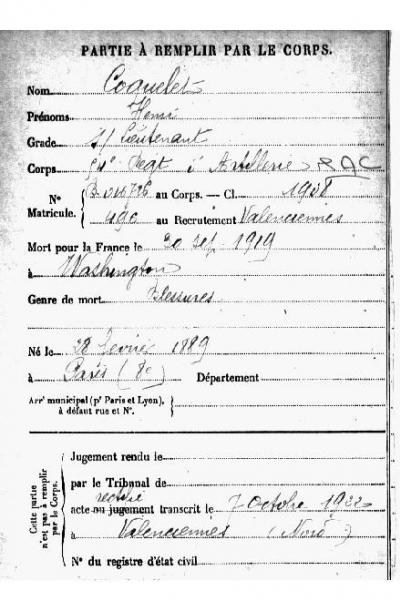 PARTIE À REMPLIR PAR LE CORPS.
Nom Coquelet
Prénoms Henri
Grade S/ Lieutenant
Corps Regt d'Artillerie RAC
Nº Matricule. au Corps. — Cl. 1908
490 au Recrutement Valenciennes
Mort pour la France le 20 sep. 1919
à Washington
Genre de mort Blessures
Né le 28 février 1889
à Paris (8e) Département
Arrᵗ municipal (pʳ Paris et Lyon), à défaut rue et Nº.
Cette partie n'est pas à remplir par le Corps.
Jugement rendu le
par le Tribunal de
rectifié
acte ou jugement transcrit le 7 Octobre 1922
à Valenciennes (Nord)
Nº du registre d'état civil